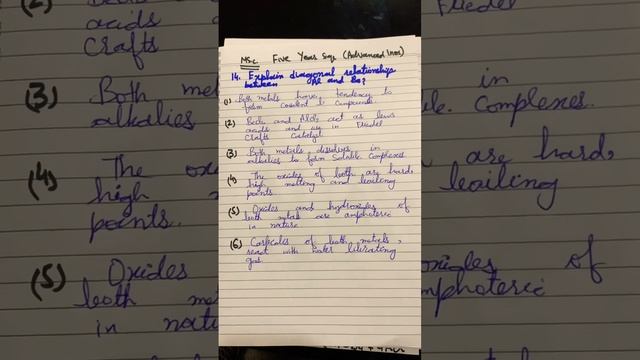 MSc Five Year Sag (Advanced Inor)
14. Explain diagonal relationship
between Al and Be?
(1) Both metals have tendency to
form covalent compounds
(2) BeCl2 and AlCl3 act as lewis
acids and use in Friedel
Crafts Catalyst
(3) Both metals dissolve in
alkalies to form Soluble Complexes
(4) The oxides of both are hard,
high melting and boiling
points.
(5) Oxides and hydroxides of
both metals are amphoteric
in nature
(6) Carbides of both metals,
react with water liberating
gas